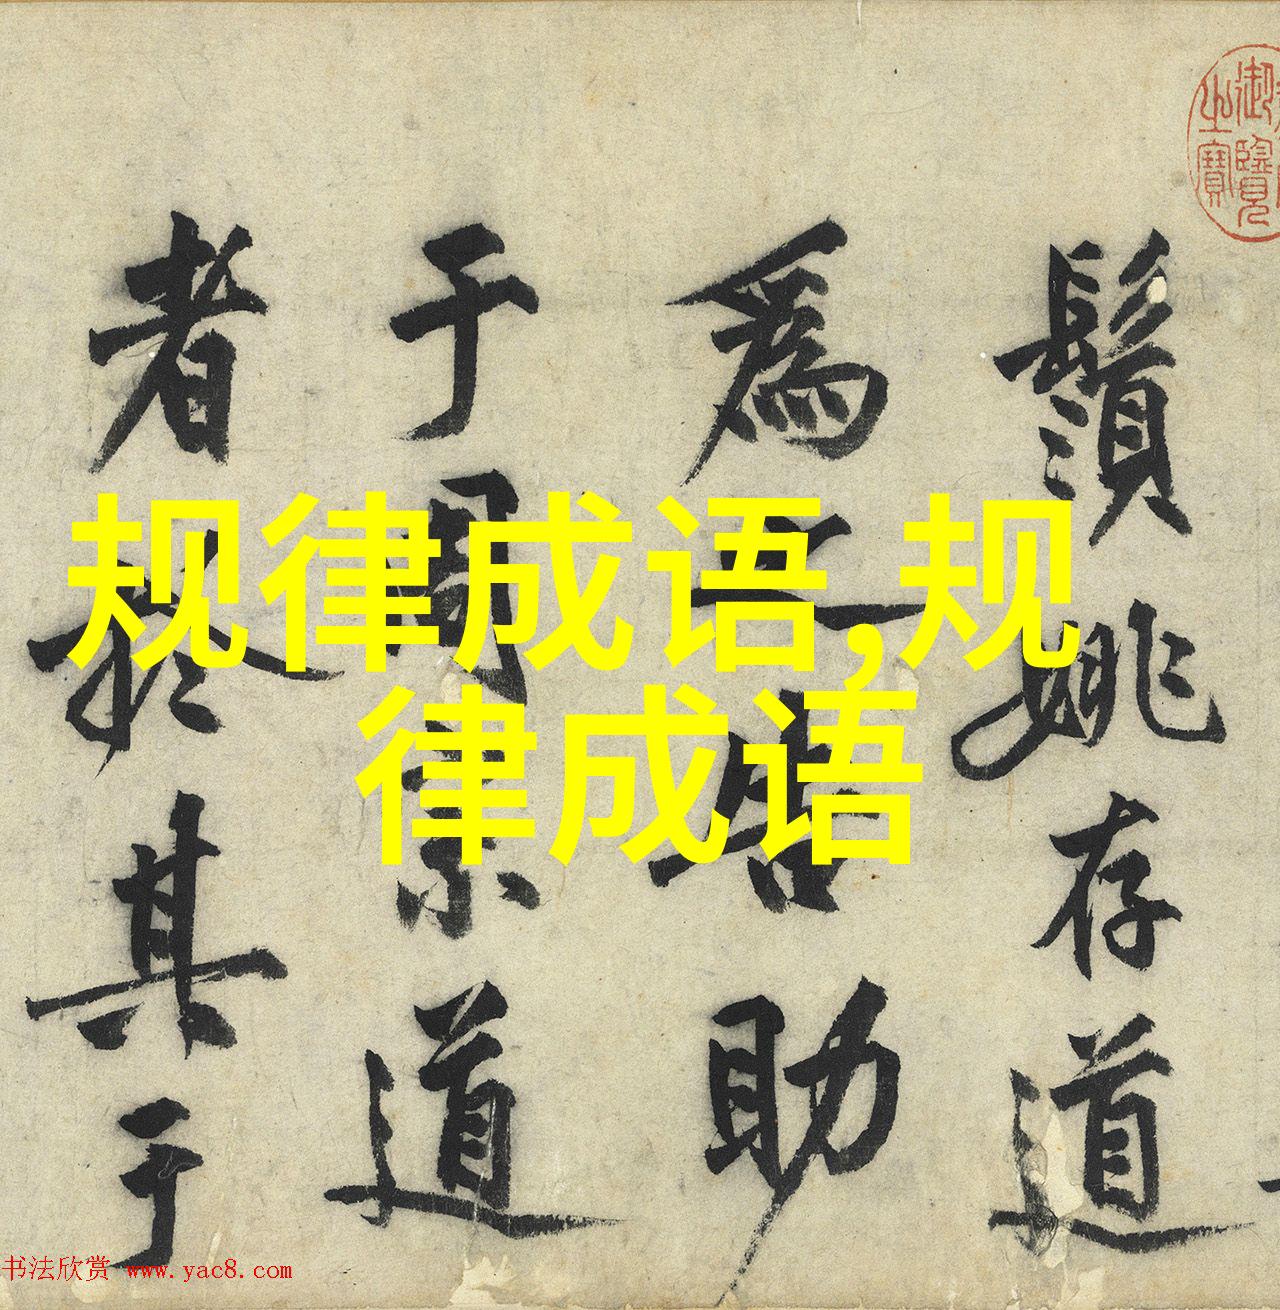 规律成语,规
律成语
御覽
之寶
鬚姚存道
為告助
于道
者於其于
书法欣赏 www.yac8.com